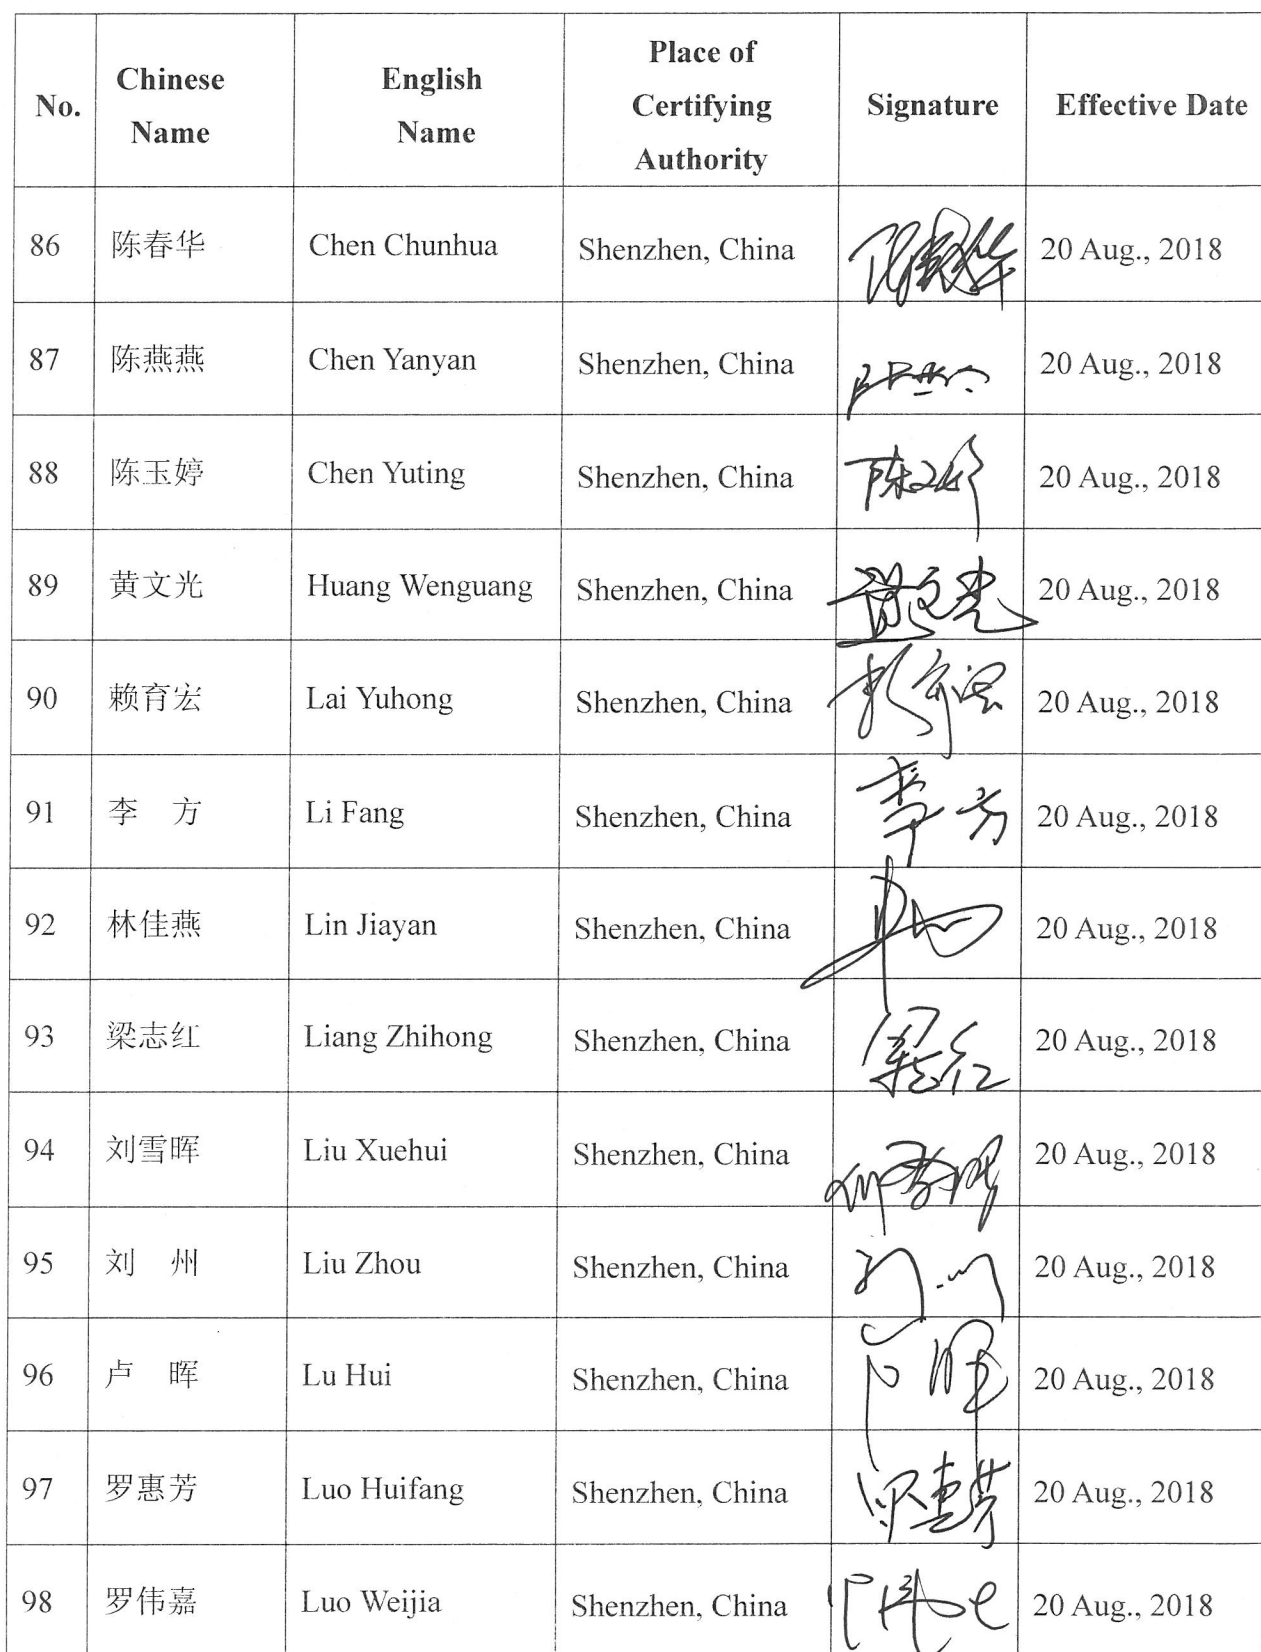 No. Chinese Name English Name Place of Certifying Authority Signature Effective Date
86 陈春华 Chen Chunhua Shenzhen, China 陈春华 20 Aug., 2018
87 陈燕燕 Chen Yanyan Shenzhen, China 20 Aug., 2018
88 陈玉婷 Chen Yuting Shenzhen, China 陈玉婷 20 Aug., 2018
89 黄文光 Huang Wenguang Shenzhen, China 黄文光 20 Aug., 2018
90 赖育宏 Lai Yuhong Shenzhen, China 20 Aug., 2018
91 李 方 Li Fang Shenzhen, China 李方 20 Aug., 2018
92 林佳燕 Lin Jiayan Shenzhen, China 20 Aug., 2018
93 梁志红 Liang Zhihong Shenzhen, China 20 Aug., 2018
94 刘雪晖 Liu Xuehui Shenzhen, China 20 Aug., 2018
95 刘 州 Liu Zhou Shenzhen, China 刘州 20 Aug., 2018
96 卢 晖 Lu Hui Shenzhen, China 卢晖 20 Aug., 2018
97 罗惠芳 Luo Huifang Shenzhen, China 罗惠芳 20 Aug., 2018
98 罗伟嘉 Luo Weijia Shenzhen, China 20 Aug., 2018